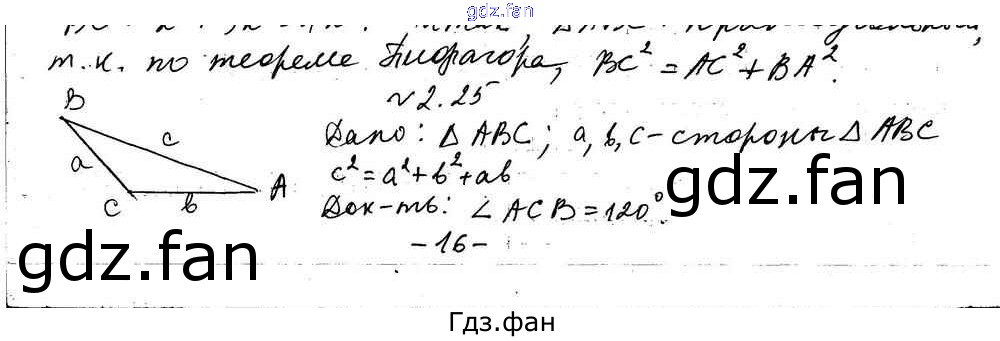 gdz.fan
т.к. по теореме Пифагора, BC² = AC² + BA².
~ 2.25
B
c
a
C
b
A
Дано: Δ ABC; a, b, c - стороны Δ ABC
c² = a² + b² + ab
Док-ть: ∠ ACB = 120°.
- 16 -
gdz.fan
gdz.fan
Гдз.фан